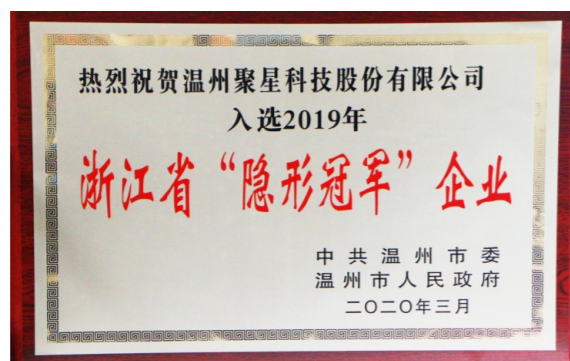 热烈祝贺温州聚星科技股份有限公司
入选2019年
浙江省“隐形冠军”企业
中共温州市委
温州市人民政府
二〇二〇年三月